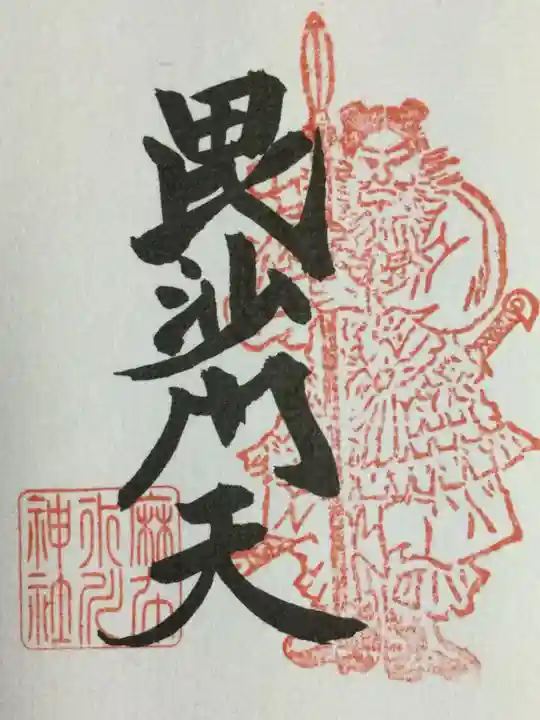 毘沙門天
麻布
氷川
神社